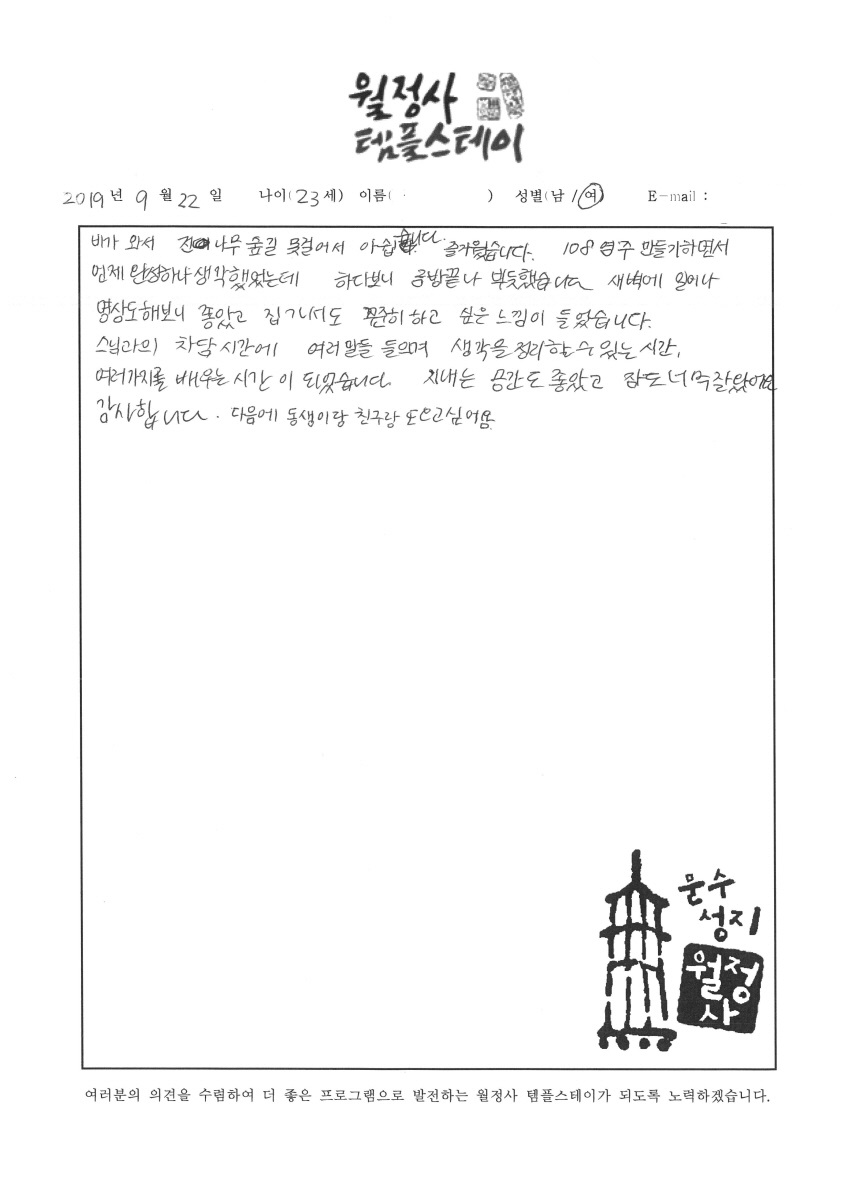 월정사
템플스테이
2019년 9월 22일 나이(23세) 이름( ) 성별(남/여) E-mail :
비가 와서 전나무 숲길 못걸어서 아쉽습니다. 즐거웠습니다. 108염주 만들기하면서
언제 완성하나 생각했었는데 하다보니 금방끝나 뿌듯했습니다 새벽에 일어나
명상도해보니 좋았고 집가서도 꾸준히 하고 싶은 느낌이 들었습니다.
스님과의 차담시간에 여러말들 들으며 생각을 정리할 수 있는 시간,
여러가지를 배우는 시간이 되었습니다. 지내는 공간도 좋았고 잠도 너무 잘잤어요
감사합니다. 다음에 동생이랑 친구랑 또오고싶어요.
문수
성지
월정
사
여러분의 의견을 수렴하여 더 좋은 프로그램으로 발전하는 월정사 템플스테이가 되도록 노력하겠습니다.